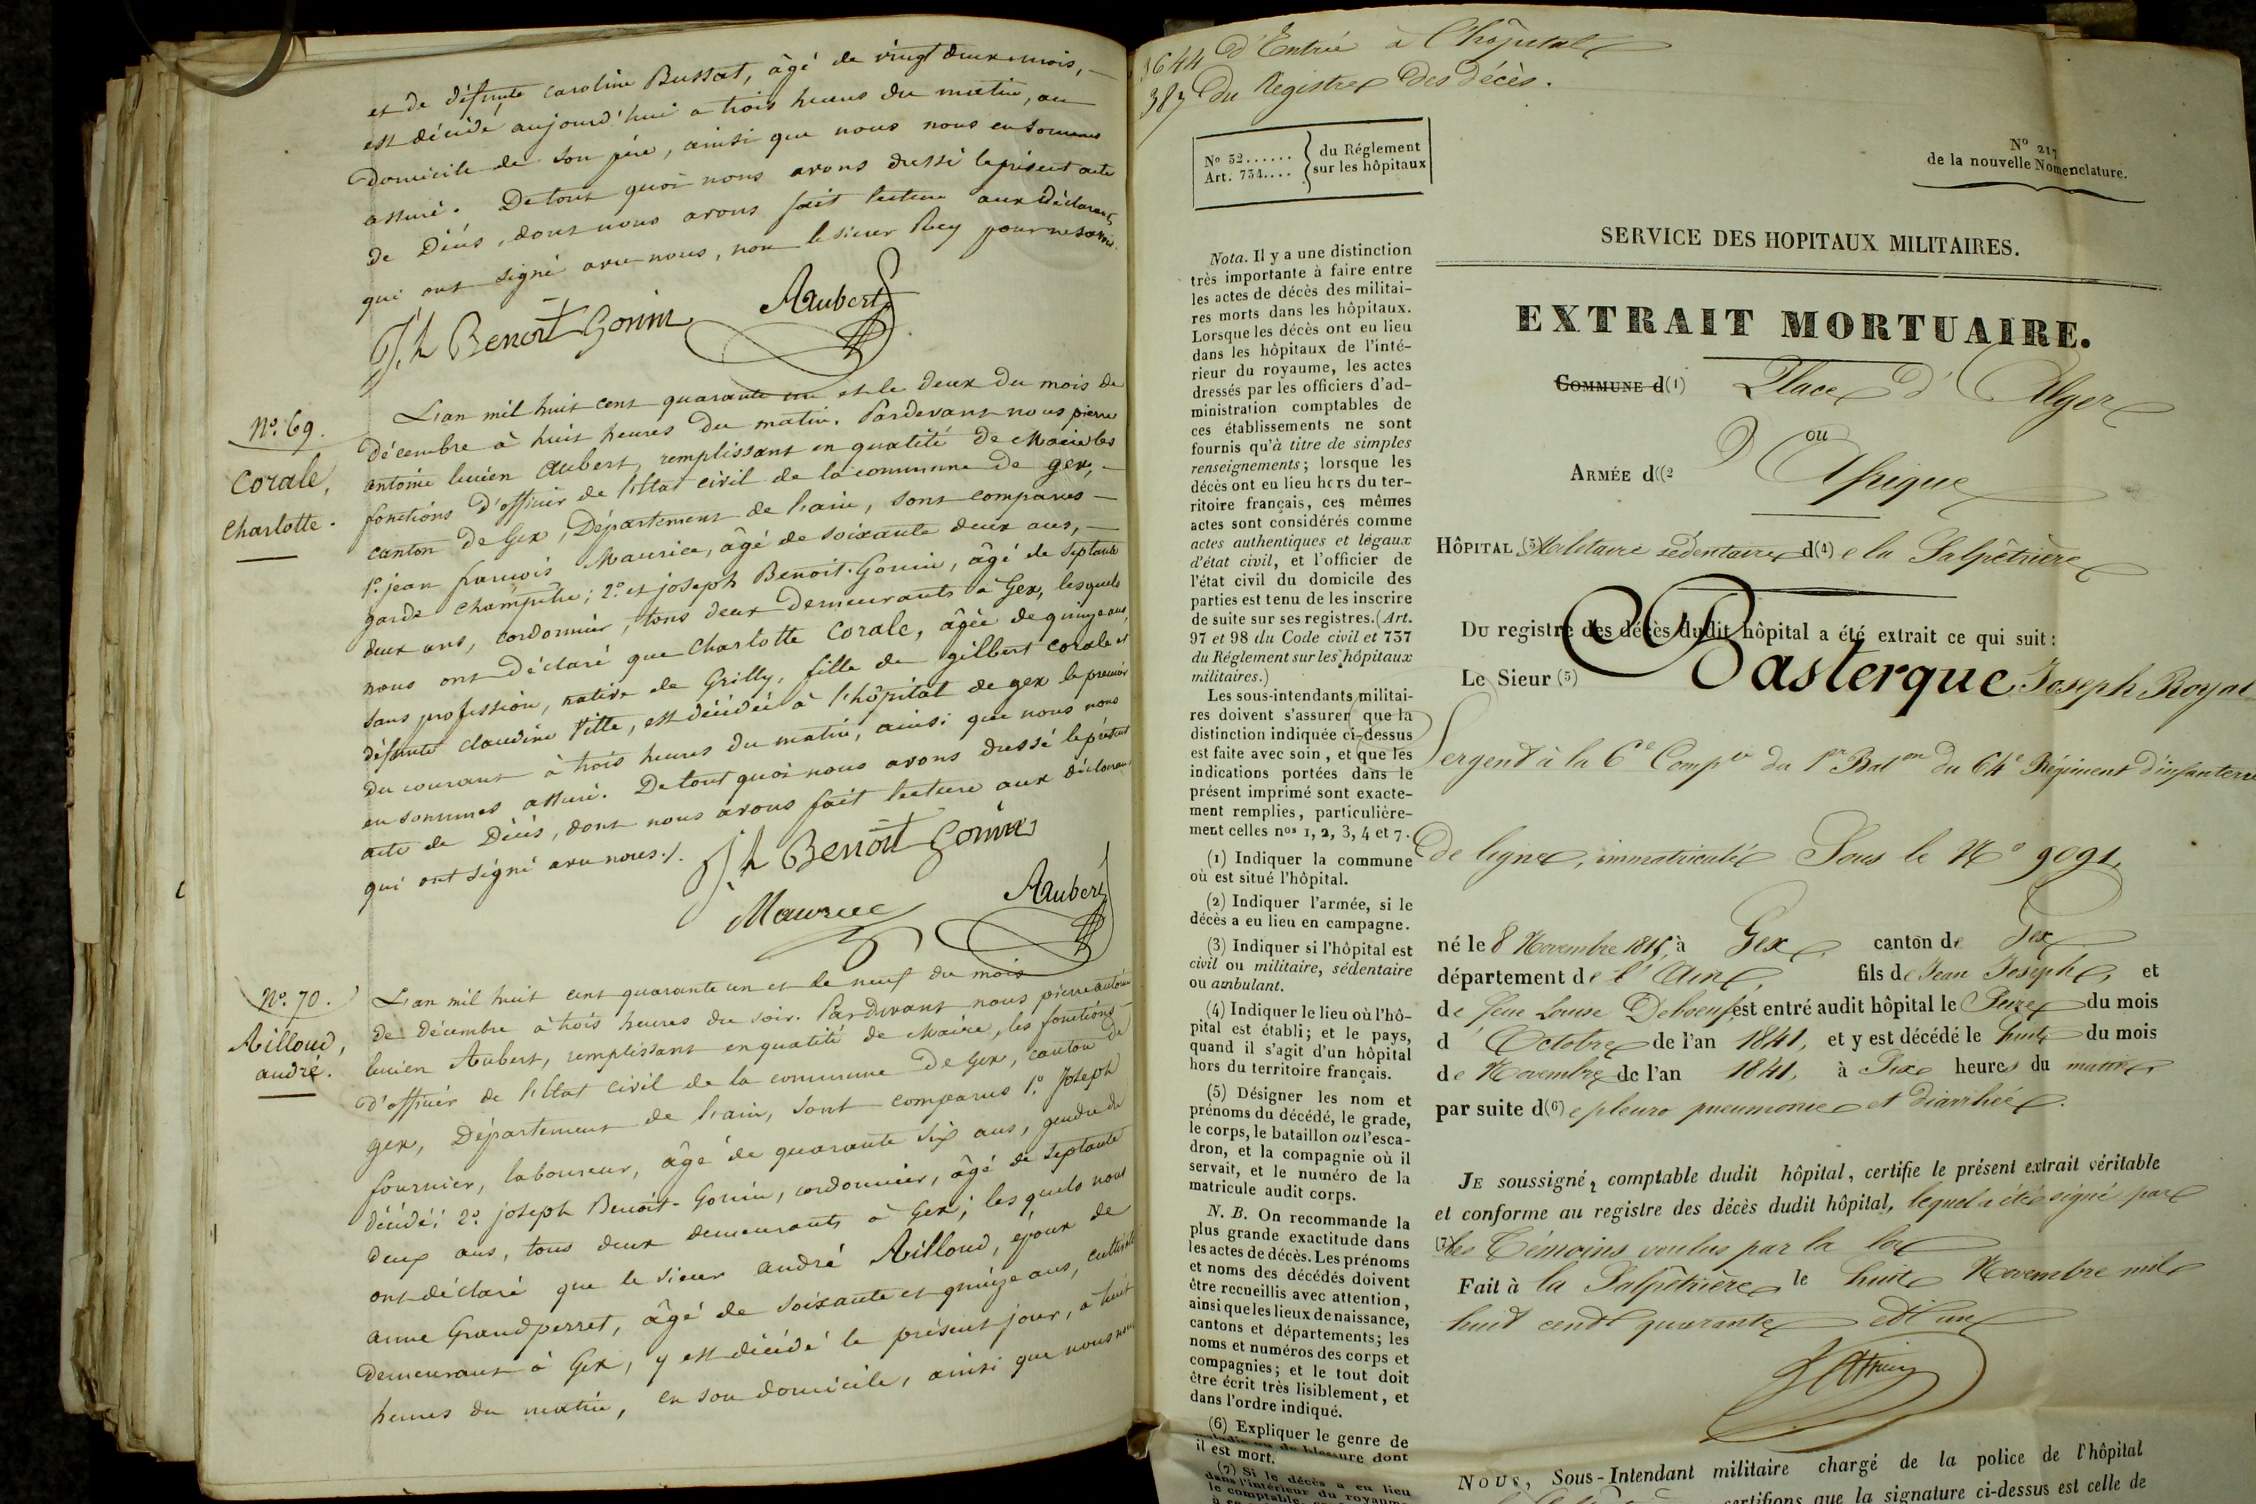 et de défunte caroline Bussat, âgé de vingt deux mois,
est décédé aujourd'hui a trois heures du matin, au
Domicile de son père, ainsi que nous nous en sommes
assuré. De tout quoi nous avons dressé le présent acte
de Décès, dont nous avons fait lecture aux Déclarants
qui ont signé avec nous, non le sieur Rey pour ne savoir.
Jh Benoit Gonin Aubert
N°. 69.
Corale,
Charlotte.
L'an mil huit cent quarante un et le deux du mois de
décembre à huit heures du matin. Pardevant nous pierre
antoine lucien Aubert, remplissant en qualité de Maire les
fonctions d'officier de l'Etat civil de la commune de gex,
canton de Gex, Département de l'ain, sont comparus
1°. jean françois Maurice, âgé de soixante deux ans,
garde champêtre; 2°. et joseph Benoit-Gonin, âgé de septante
deux ans, cordonnier, tous deux demeurants à Gex, lesquels
nous ont déclaré que Charlotte Corale, âgée de quinze ans,
sans profession, native de Grilly, fille de gilbert corale et
défunte claudine Vitte, est décédée à l'hôpital de gex le premier
du courant à trois heures du matin, ainsi que nous nous
en sommes assuré. De tout quoi nous avons dressé le présent
acte de Décès, dont nous avons fait lecture aux déclarants
qui ont signé avec nous./.
Jh Benoit Gonin
Maurice Aubert
N°. 70.
Rilloud,
andré.
L'an mil huit cent quarante un et le neuf du mois
de décembre à trois heures du soir. Pardevant nous pierre antoine
lucien Aubert, remplissant en qualité de Maire, les fonctions
d'officier de l'Etat civil de la commune de Gex, canton de
gex, Département de l'ain, sont comparus 1°. Joseph
fournier, laboureur, âgé de quarante six ans, gendre du
décédé; 2°. joseph Benoit-Gonin, cordonnier, âgé de septante
deux ans, tous deux demeurants à Gex; lesquels nous
ont déclaré que le sieur andré Rilloud, époux de
anne Grandperret, âgé de soixante et quinze ans,
demeurant à Gex, y est décédé le présent jour, à huit
heures du matin, en son domicile, ainsi que nous nous
3644 d'Entrée à l'hôpital
387 du Registre des décès.
N° 52...... du Réglement
Art. 734.... sur les hôpitaux
N° 217
de la nouvelle Nomenclature.
Nota. Il y a une distinction
très importante à faire entre
les actes de décès des militai-
res morts dans les hôpitaux.
Lorsque les décès ont eu lieu
dans les hôpitaux de l'inté-
rieur du royaume, les actes
dressés par les officiers d'ad-
ministration comptables de
ces établissements ne sont
fournis qu'à titre de simples
renseignements; lorsque les
décès ont eu lieu hors du ter-
ritoire français, ces mêmes
actes sont considérés comme
actes authentiques et légaux
d'état civil, et l'officier de
l'état civil du domicile des
parties est tenu de les inscrire
de suite sur ses registres. (Art.
97 et 98 du Code civil et 737
du Réglement sur les hôpitaux
militaires.)
Les sous-intendants militai-
res doivent s'assurer que la
distinction indiquée ci-dessus
est faite avec soin, et que les
indications portées dans le
présent imprimé sont exacte-
ment remplies, particulière-
ment celles nos 1, 2, 3, 4 et 7.
(1) Indiquer la commune
où est situé l'hôpital.
(2) Indiquer l'armée, si le
décès a eu lieu en campagne.
(3) Indiquer si l'hôpital est
civil ou militaire, sédentaire
ou ambulant.
(4) Indiquer le lieu où l'hô-
pital est établi; et le pays,
quand il s'agit d'un hôpital
hors du territoire français.
(5) Désigner les nom et
prénoms du décédé, le grade,
le corps, le bataillon ou l'esca-
dron, et la compagnie où il
servait, et le numéro de la
matricule audit corps.
N. B. On recommande la
plus grande exactitude dans
les actes de décès. Les prénoms
et noms des décédés doivent
être recueillis avec attention,
ainsi que les lieux de naissance,
cantons et départements; les
noms et numéros des corps et
compagnies; et le tout doit
être écrit très lisiblement, et
dans l'ordre indiqué.
(6) Expliquer le genre de
maladie ou de blessure dont
il est mort.
(7) Si le décès a eu lieu
dans l'intérieur du royaume
le comptable
SERVICE DES HOPITAUX MILITAIRES.
EXTRAIT MORTUAIRE.
COMMUNE d(1) Place d'Alger
ou
ARMÉE d((2 D'Afrique
HÔPITAL (3) Militaire sédentaire d(4) e la Salpêtrière
Du registre des décès dudit hôpital a été extrait ce qui suit :
Le Sieur (5) Basterque Joseph Royal
Sergent à la 6e Compie du 1er Baton du 64e Régiment d'infanterie
De ligne, immatriculé Sous le N° 9091,
né le 8 Novembre 1815, à Gex canton de Gex
département de l'Ain, fils de Jean Joseph, et
de feue Louise est entré audit hôpital le Onze du mois
d'Octobre de l'an 1841, et y est décédé le huit du mois
de Novembre de l'an 1841, à Six heures du matin
par suite d(6) e pleuro pneumonie et diarrhée.
JE soussigné, comptable dudit hôpital, certifie le présent extrait véritable
et conforme au registre des décès dudit hôpital, lequel a été signé par
(7) les Témoins voulus par la loi
Fait à la Salpêtrière le huit Novembre mil
huit cent quarante et un
NOUS, Sous-Intendant militaire chargé de la police de l'hôpital
certifions que la signature ci-dessus est celle de